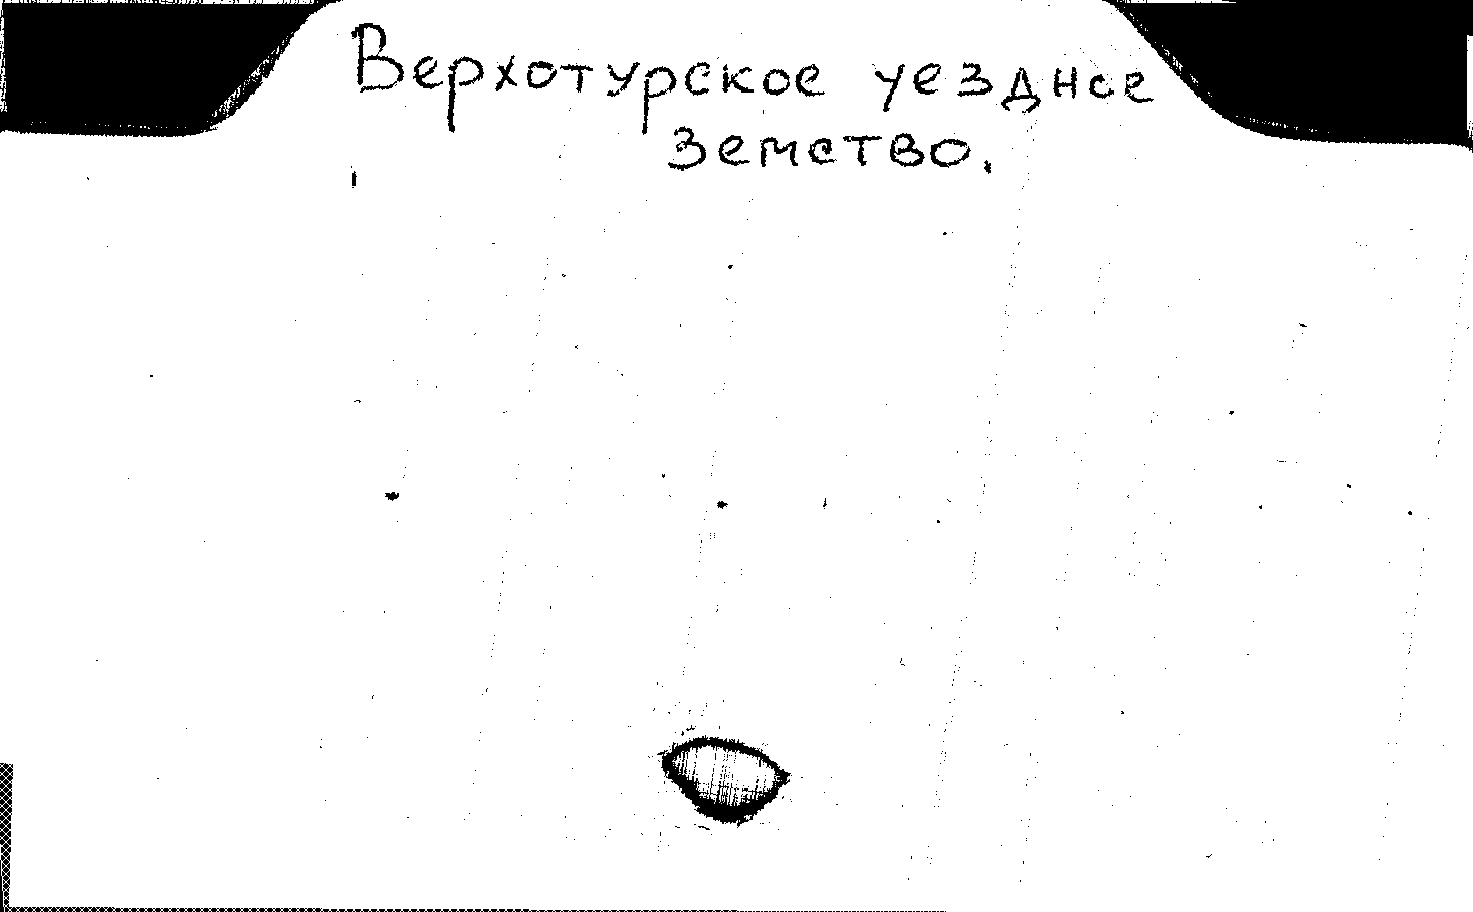 Верхотурское уездное
земство.